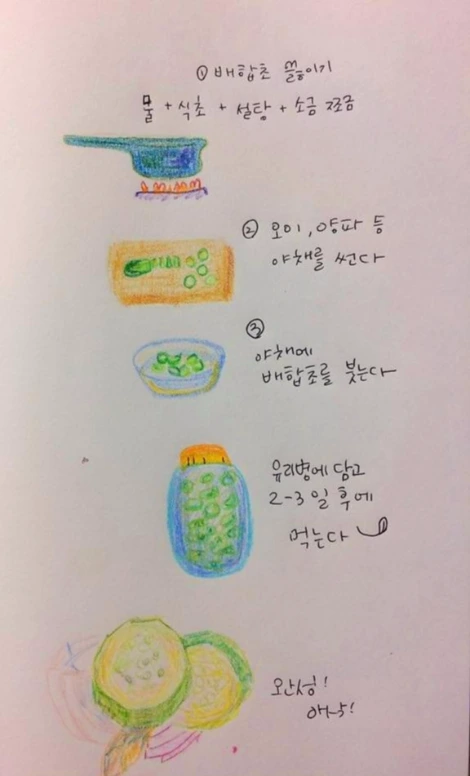 ① 배합초 끓이기
물 + 식초 + 설탕 + 소금 조금
② 오이, 양파 등
야채를 썬다
③
야채에
배합초를 붓는다
유리병에 담고
2-3일 후에
먹는다
완성!